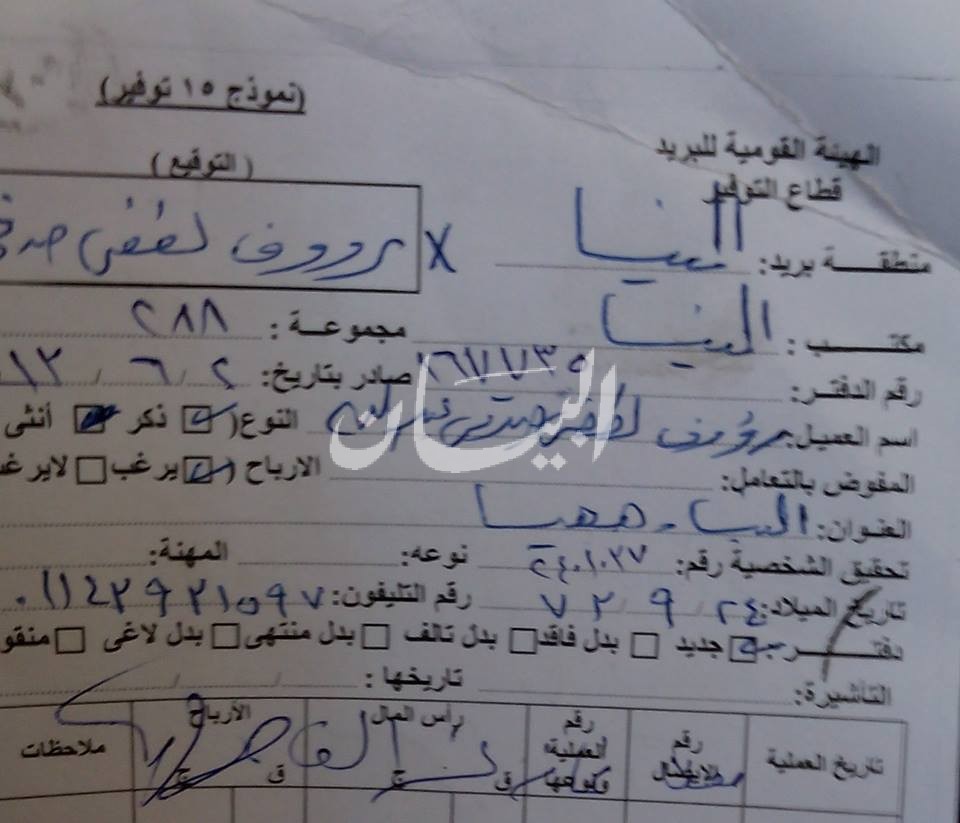 (نموذج ١٥ توفير)
الهيئة القومية للبريد
قطاع التوفير
(التوقيع)
منطقة بريد: المنيا
X رووف لطفى صدقى
مكتب: المنيا
مجموعة: ٢٨٨
رقم الدفتر: ١٦٧٧٣٥ صادر بتاريخ: ٢/ ٦/ ١٢
اسم العميل: رؤوف لطفى صدقى النوع( ذكر أنثى
المفوض بالتعامل: الارباح ( يرغب لايرغب
البيان
العنوان:
تحقيق الشخصية رقم: نوعه: المهنة:
تاريخ الميلاد: ٢٤/ ٩/ ٧٢ رقم التليفون: ٠١١٤٢٩٢١٥٩٧
دفتر: جديد بدل فاقد بدل تالف بدل منتهى بدل لاغى منقو
التأشيرة: تاريخها:
تاريخ العملية رقم الايصال رقم العملية ونوعها رأس المال الأرباح ملاحظات
ق ج ق ج